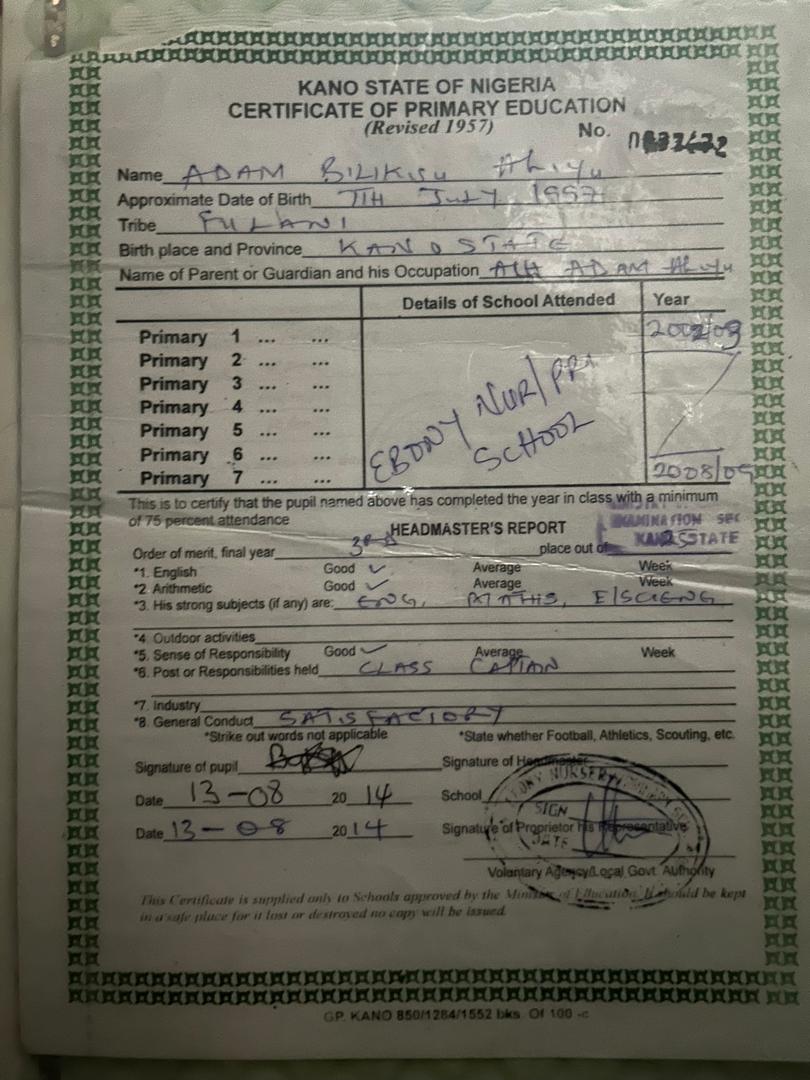 KANO STATE OF NIGERIA
CERTIFICATE OF PRIMARY EDUCATION
(Revised 1957)
No.
Name ADAM BILIKISU Aliyu
Approximate Date of Birth 7TH JULY 1997
Tribe FULANI
Birth place and Province KANO STATE
Name of Parent or Guardian and his Occupation ALH ADAM Aliyu
Details of School Attended Year
Primary 1 ... ... 2002/03
Primary 2 ... ...
Primary 3 ... ...
Primary 4 ... ...
Primary 5 ... ...
Primary 6 ... ...
Primary 7 ... ... 2008/09
EBONY NUR/PRI
SCHOOL
This is to certify that the pupil named above has completed the year in class with a minimum
of 75 percent attendance
EXAMINATION SEC
KANO STATE
HEADMASTER'S REPORT
Order of merit, final year 3RD place out of 25
*1. English Good ✓ Average Week
*2. Arithmetic Good ✓ Average Week
*3. His strong subjects (if any) are: ENG, MATHS, E/SCIENG
*4. Outdoor activities
*5. Sense of Responsibility Good ✓ Average Week
*6. Post or Responsibilities held CLASS CAPTAN
*7. Industry
*8. General Conduct SATISFACTORY
*Strike out words not applicable *State whether Football, Athletics, Scouting, etc.
Signature of pupil Signature of Headmaster
Date 13-08 2014 School
Date 13-08 2014 Signature of Proprietor his Representative
EBONY NURSERY/PRIMARY
SIGN
DATE
Voluntary Agency/Local Govt. Authority
This Certificate is supplied only to Schools approved by the Ministry of Education. It should be kept
in a safe place for it lost or destroyed no copy will be issued.
GP. KANO 850/1284/1552 bks. Of 100 -c